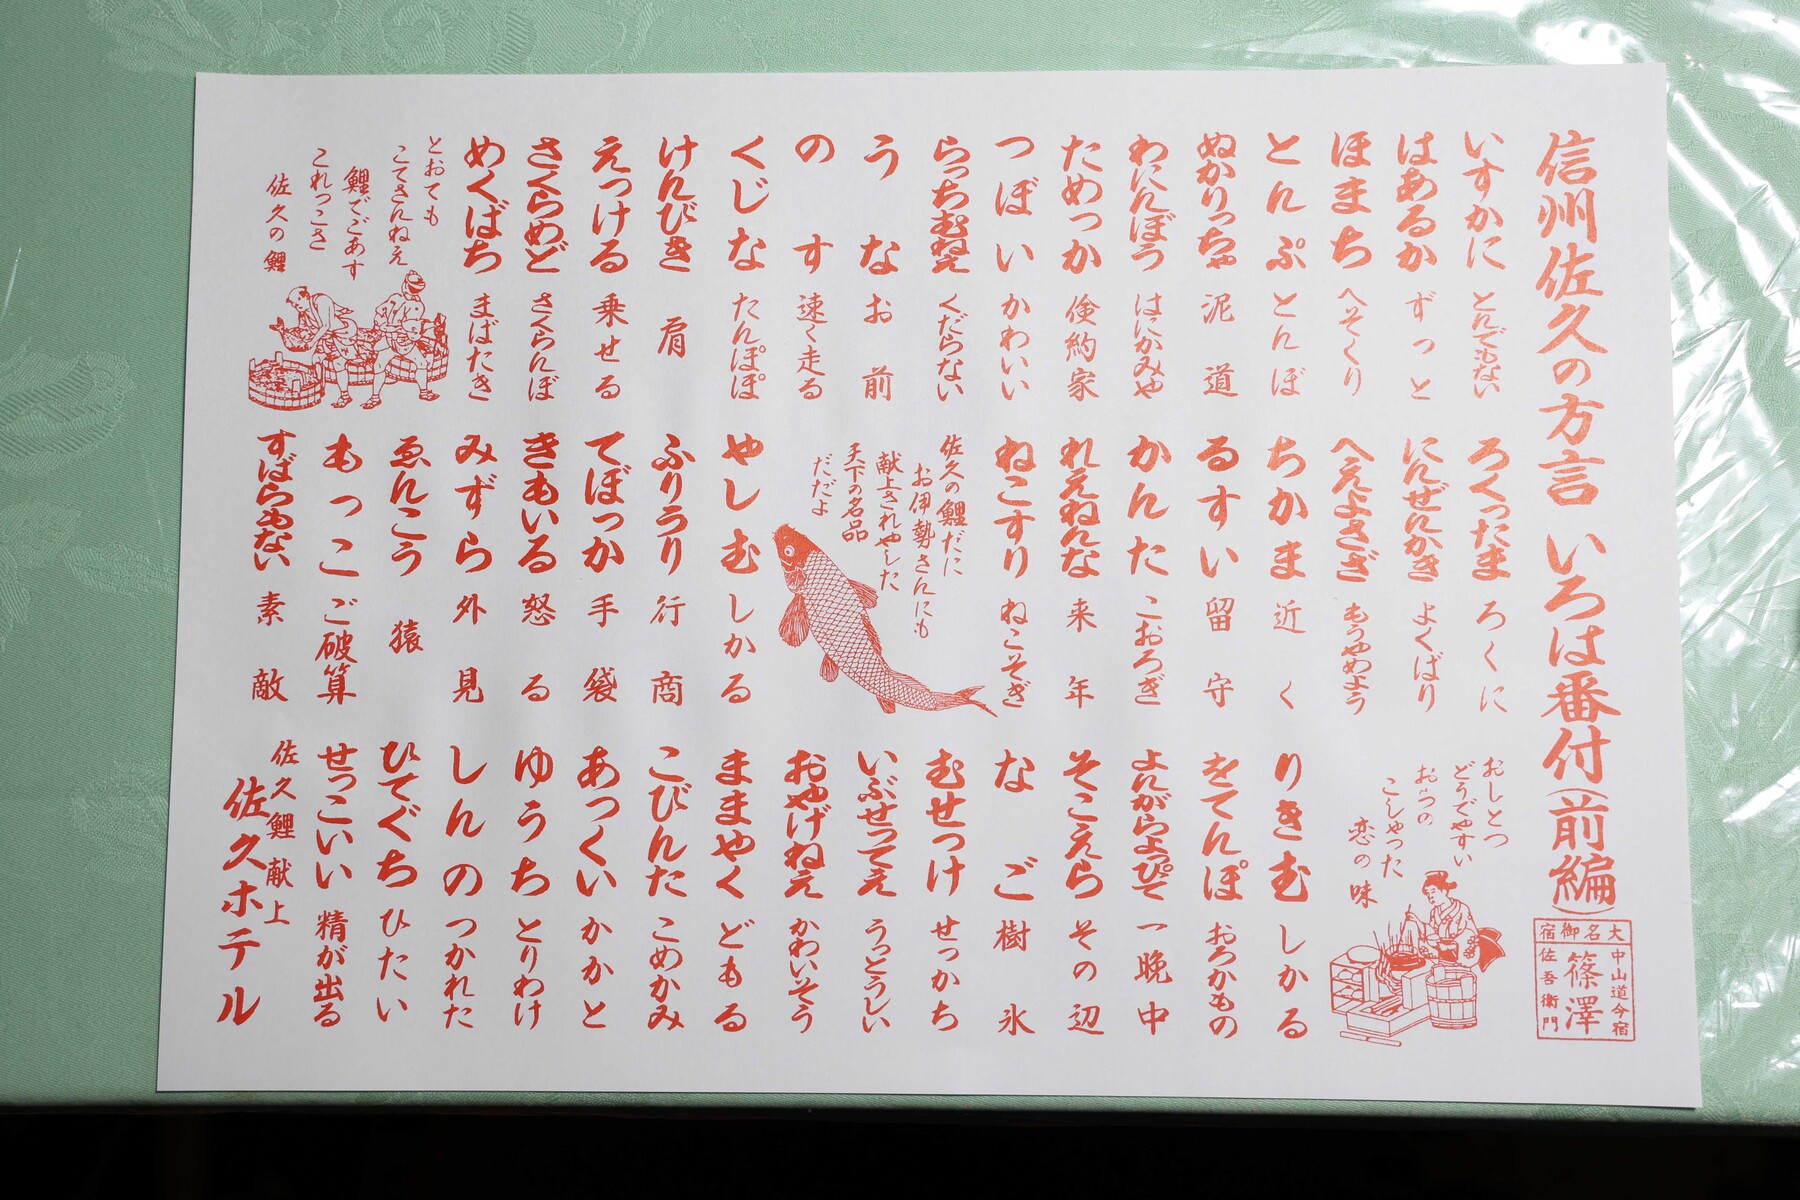 信州佐久の方言 いろは番付(前編)
大名御宿
中山道今宿
篠澤
佐吾衛門
いすかに とんでもない
はあるか ずっと
ほまち へそくり
とんぷ とんぼ
ぬかりっちゃ 泥道
わにんぼう はにかみや
ためっか 倹約家
つぼい かわいい
らっちむねえ くだらない
うな お前
のす 速く走る
くじな たんぽぽ
けんびき 肩
えっける 乗せる
さくらめど さくらんぼ
めくばち まばたき
とおても
こてさんねえ
鯉でごあす
これっこさ
佐久の鯉
ろくったま ろくに
にんぜんかき よくばり
へえよさぎ もうやめよう
ちかま 近く
るすい 留守
かんた こおろぎ
れえねんな 来年
ねこすり ねこそぎ
佐久の鯉だに
お伊勢さんにも
献上されやした
天下の名品
だだよ
やしむ しかる
ふりうり 行商
てぼっか 手袋
きもいる 怒る
みずら 外見
ゑんこう 猿
もっこ ご破算
すばらもない 素敵
おしとつ
どうでやすい
おつの
こしゃった
恋の味
りきむ しかる
をてんぽ おろかもの
よんがらよっぴて 一晩中
そこえら その辺
なご 樹氷
むせっけ せっかち
いぶせってえ うっとうしい
おやげねえ かわいそう
ままやく どもる
こびんた こめかみ
あっくい かかと
ゆうち とりわけ
しんの つかれた
ひてぐち ひたい
せっこいい 精が出る
佐久鯉献上
佐久ホテル